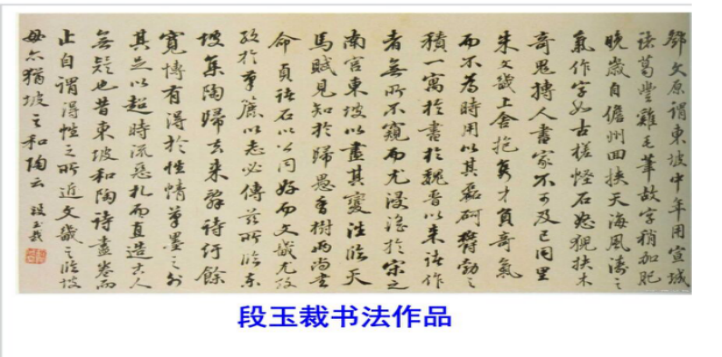 鄧文原謂東坡中年用宣城
諸葛豐雞毛筆故字稍加肥
晚歲自儋州回挾天海風濤之
氣作字如古槎怪石怒猊抉木
奇鬼搏人書家不可及已同里
朱文上舍抱雋才負奇氣
而不為時用以其磊砢鬱勃之
積一寓於書於魏晉以來諸作
者無所不窺而尤浸淫於宋之
南宮東坡以盡其變往臨天
馬賦見知於歸愚香樹兩尚書
命貞諸石以公同好而文尤孜
孜於以志必傳茲所臨東
坡集陶歸去來辭詩紆餘
寬博有得於性情筆墨之外
其足以超時流惡札而直造古人
無疑也昔東坡和陶詩盡卷而
止自謂得性之所近文之臨坡
毋亦猶坡之和陶云 段玉裁
段玉裁书法作品